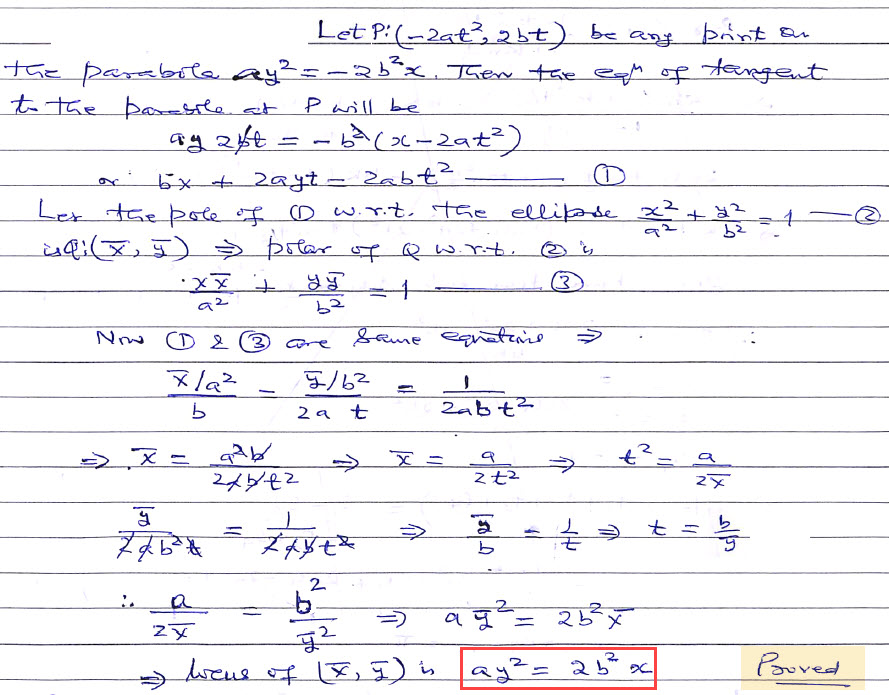 Let P:(-2at², 2bt) be any point on
the parabola ay² = -2b²x. Then the eqⁿ of tangent
to the parabola at P will be
ay 2bt = -b²(x-2at²)
or bx + 2ayt = 2abt² ——— ①
Let the pole of ① w.r.t. the ellipse x²/a² + y²/b² = 1 — ②
is Q:(x̄, ȳ) ⇒ polar of Q w.r.t. ② is
xx̄/a² + yȳ/b² = 1 ——— ③
Now ① & ③ are same equations ⇒
(x̄/a²)/b = (ȳ/b²)/(2a t) = 1/(2abt²)
⇒ x̄ = a²b/(2abt²) ⇒ x̄ = a/(2t²) ⇒ t² = a/(2x̄)
ȳ/(2ab²t) = 1/(2abt²) ⇒ ȳ/b = 1/t ⇒ t = b/ȳ
∴ a/(2x̄) = b²/ȳ² ⇒ aȳ² = 2b²x̄
⇒ locus of (x̄, ȳ) is ay² = 2b²x Proved